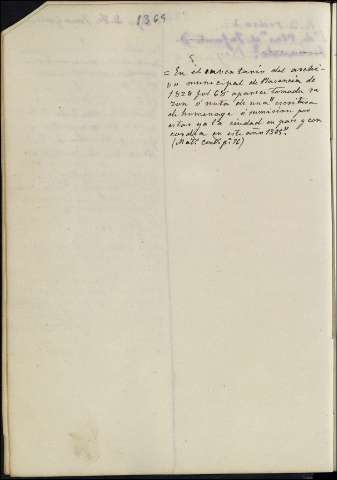 1369
= En el inventario del archi-
vo municipal de Plasencia de
1828 fol 68 aparece tomada ra
zon ó nota de una escritura
de homenage ó sumision por
estar ya la ciudad en paz y con
cordia en este año 1369.
(Mat.